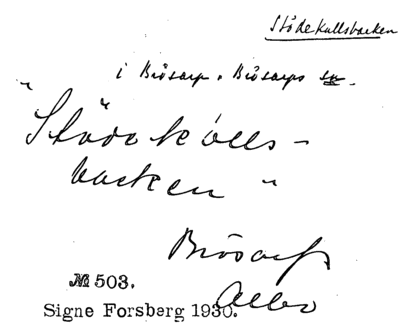 Stödekullsbacken
i Brösarp, Brösarps sn.
"Stödekulls-
backen"
Brösarps
Albo
№ 503.
Signe Forsberg 1930.